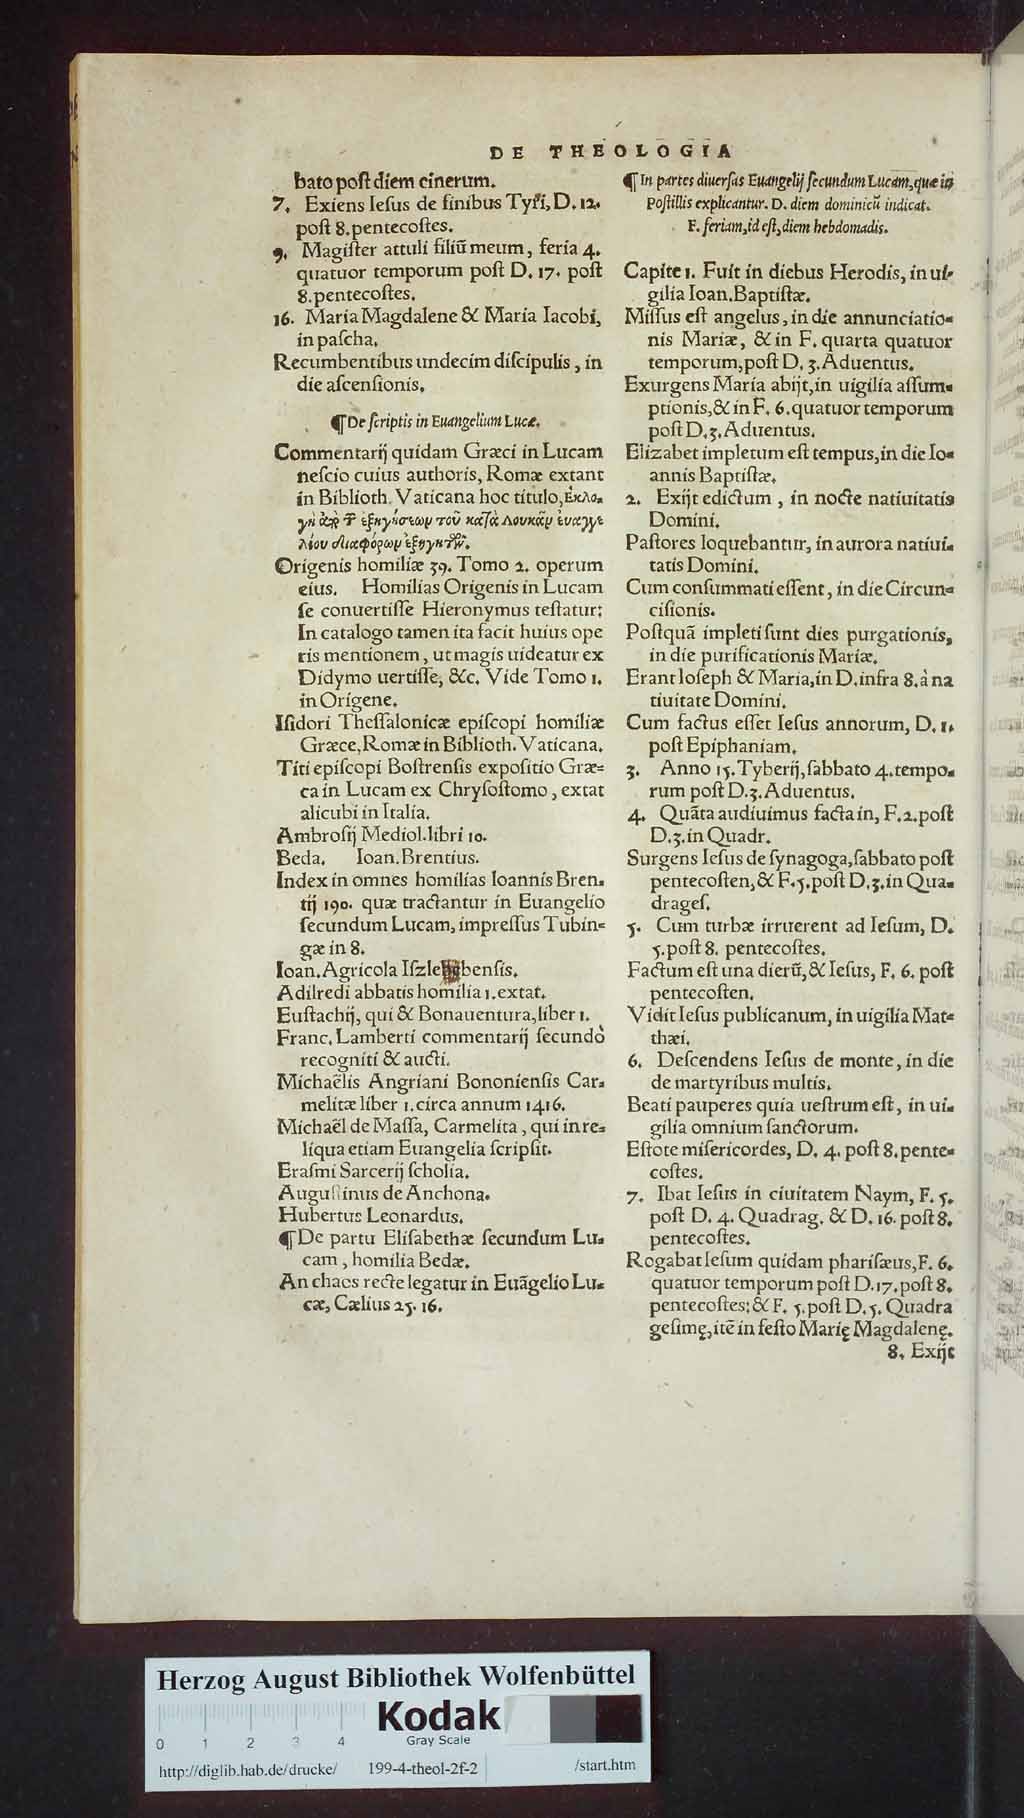 DE THEOLOGIA
bato poſt diem cinerum.
7. Exiens Ieſus de finibus Tyri, D. 12.
poſt 8. pentecoſtes.
9. Magiſter attuli filiū meum, feria 4.
quatuor temporum poſt D. 17. poſt
8. pentecoſtes.
16. Maria Magdalene & Maria Iacobi,
in paſcha.
Recumbentibus undecim diſcipulis, in
die aſcenſionis.
¶ De ſcriptis in Euangelium Lucæ.
Commentarij quidam Græci in Lucam
neſcio cuius authoris, Romæ extant
in Biblioth. Vaticana hoc titulo, Ἐκλο-
γὴ ἐξηγήσεωμ τοῦ κατὰ Λουκᾶμ ἐυαγγε
λίου διαφόρωμ ἐξηγητῶμ.
Origenis homiliæ 39. Tomo 2. operum
eius. Homilias Origenis in Lucam
ſe conuertiſſe Hieronymus teſtatur:
In catalogo tamen ita facit huius ope
ris mentionem, ut magis uideatur ex
Didymo uertiſſe, &c. Vide Tomo 1.
in Origene.
Iſidori Theſſalonicæ epiſcopi homiliæ
Græce, Romæ in Biblioth. Vaticana.
Titi epiſcopi Boſtrenſis expoſitio Græ-
ca in Lucam ex Chryſoſtomo, extat
alicubi in Italia.
Ambroſij Mediol. libri 10.
Beda. Ioan. Brentius.
Index in omnes homilias Ioannis Bren-
tij 190. quæ tractantur in Euangelio
ſecundum Lucam, impreſſus Tubin-
gæ in 8.
Ioan. Agricola Iſzlebenſis.
Adilredi abbatis homilia 1. extat.
Euſtachij, qui & Bonauentura, liber 1.
Franc. Lamberti commentarij ſecundò
recogniti & aucti.
Michaëlis Angriani Bononienſis Car-
melitæ liber 1. circa annum 1416.
Michaël de Maſſa, Carmelita, qui in re-
liqua etiam Euangelia ſcripſit.
Eraſmi Sarcerij ſcholia.
Auguſtinus de Anchona.
Hubertus Leonardus.
¶ De partu Eliſabethæ ſecundum Lu-
cam, homilia Bedæ.
An chaos recte legatur in Euāgelio Lu-
cæ, Cælius 25. 16.
¶ In partes diuerſas Euangelij ſecundum Lucam, quæ in
Poſtillis explicantur. D. diem dominicū indicat.
F. feriam, id eſt, diem hebdomadis.
Capite 1. Fuit in diebus Herodis, in ui-
gilia Ioan. Baptiſtæ.
Miſſus eſt angelus, in die annunciatio-
nis Mariæ, & in F. quarta quatuor
temporum, poſt D. 3. Aduentus.
Exurgens Maria abijt, in uigilia aſſum-
ptionis, & in F. 6. quatuor temporum
poſt D. 3. Aduentus.
Elizabet impletum eſt tempus, in die Io-
annis Baptiſtæ.
2. Exijt edictum, in nocte natiuitatis
Domini.
Paſtores loquebantur, in aurora natiui-
tatis Domini.
Cum conſummati eſſent, in die Circun-
ciſionis.
Poſtquā impleti ſunt dies purgationis,
in die purificationis Mariæ.
Erant Ioſeph & Maria, in D. infra 8. à na
tiuitate Domini.
Cum factus eſſet Ieſus annorum, D. 1.
poſt Epiphaniam.
3. Anno 15. Tyberij, ſabbato 4. tempo-
rum poſt D. 3. Aduentus.
4. Quāta audiuimus facta in, F. 2. poſt
D. 3. in Quadr.
Surgens Ieſus de ſynagoga, ſabbato poſt
pentecoſten, & F. 5. poſt D. 3. in Qua-
drageſ.
5. Cum turbæ irruerent ad Ieſum, D.
5. poſt 8. pentecoſtes.
Factum eſt una dierū, & Ieſus, F. 6. poſt
pentecoſten.
Vidit Ieſus publicanum, in uigilia Mat-
thæi.
6. Deſcendens Ieſus de monte, in die
de martyribus multis.
Beati pauperes quia ueſtrum eſt, in ui-
gilia omnium ſanctorum.
Eſtote miſericordes, D. 4. poſt 8. pente-
coſtes.
7. Ibat Ieſus in ciuitatem Naym, F. 5.
poſt D. 4. Quadrag. & D. 16. poſt 8.
pentecoſtes.
Rogabat Ieſum quidam phariſæus, F. 6.
quatuor temporum poſt D. 17. poſt 8.
pentecoſtes: & F. 5. poſt D. 5. Quadra
geſimę, itē in feſto Marię Magdalenę.
8. Exijt
Herzog August Bibliothek Wolfenbüttel
Kodak
Gray Scale
0 1 2 3 4
http://diglib.hab.de/drucke/ 199-4-theol-2f-2 /start.htm